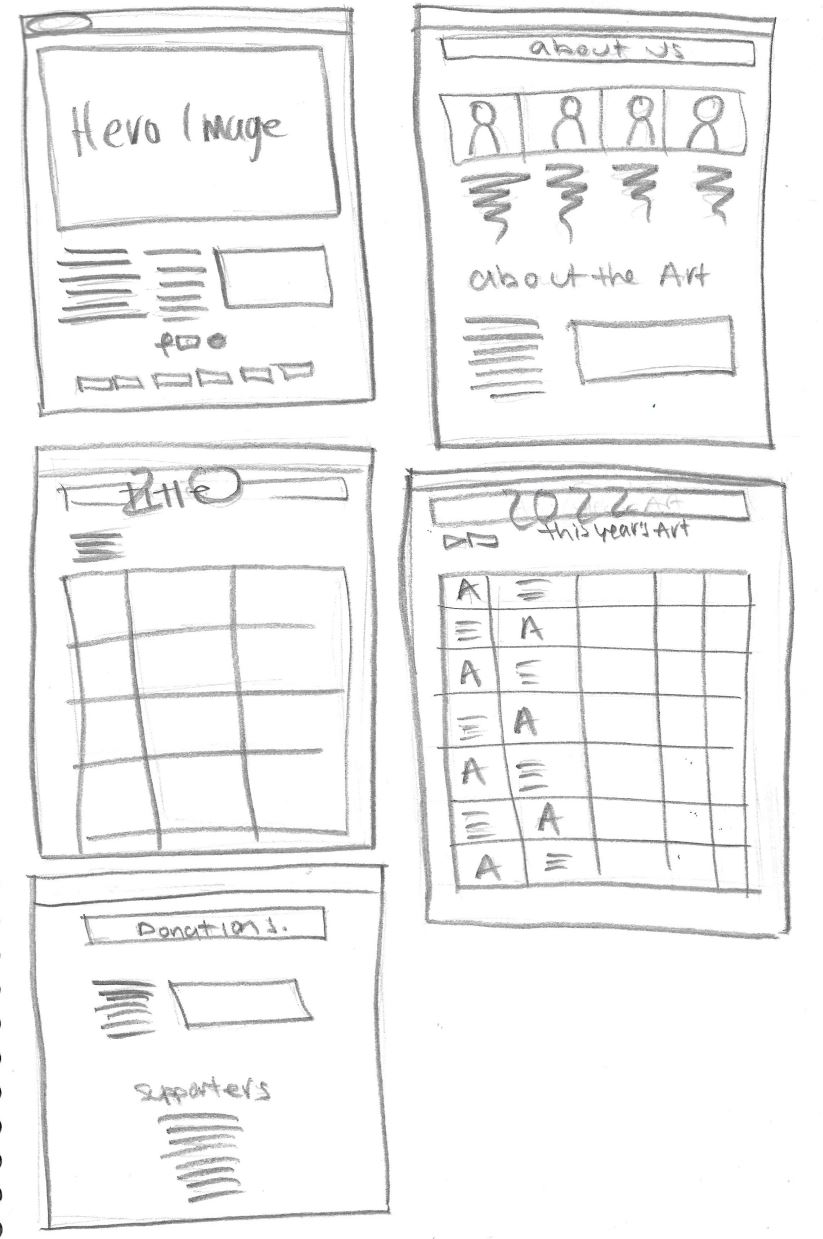 Hero Image
about us
about the Art
title
2022
this year's Art
A
A
A
A
A
A
A
Donations.
supporters